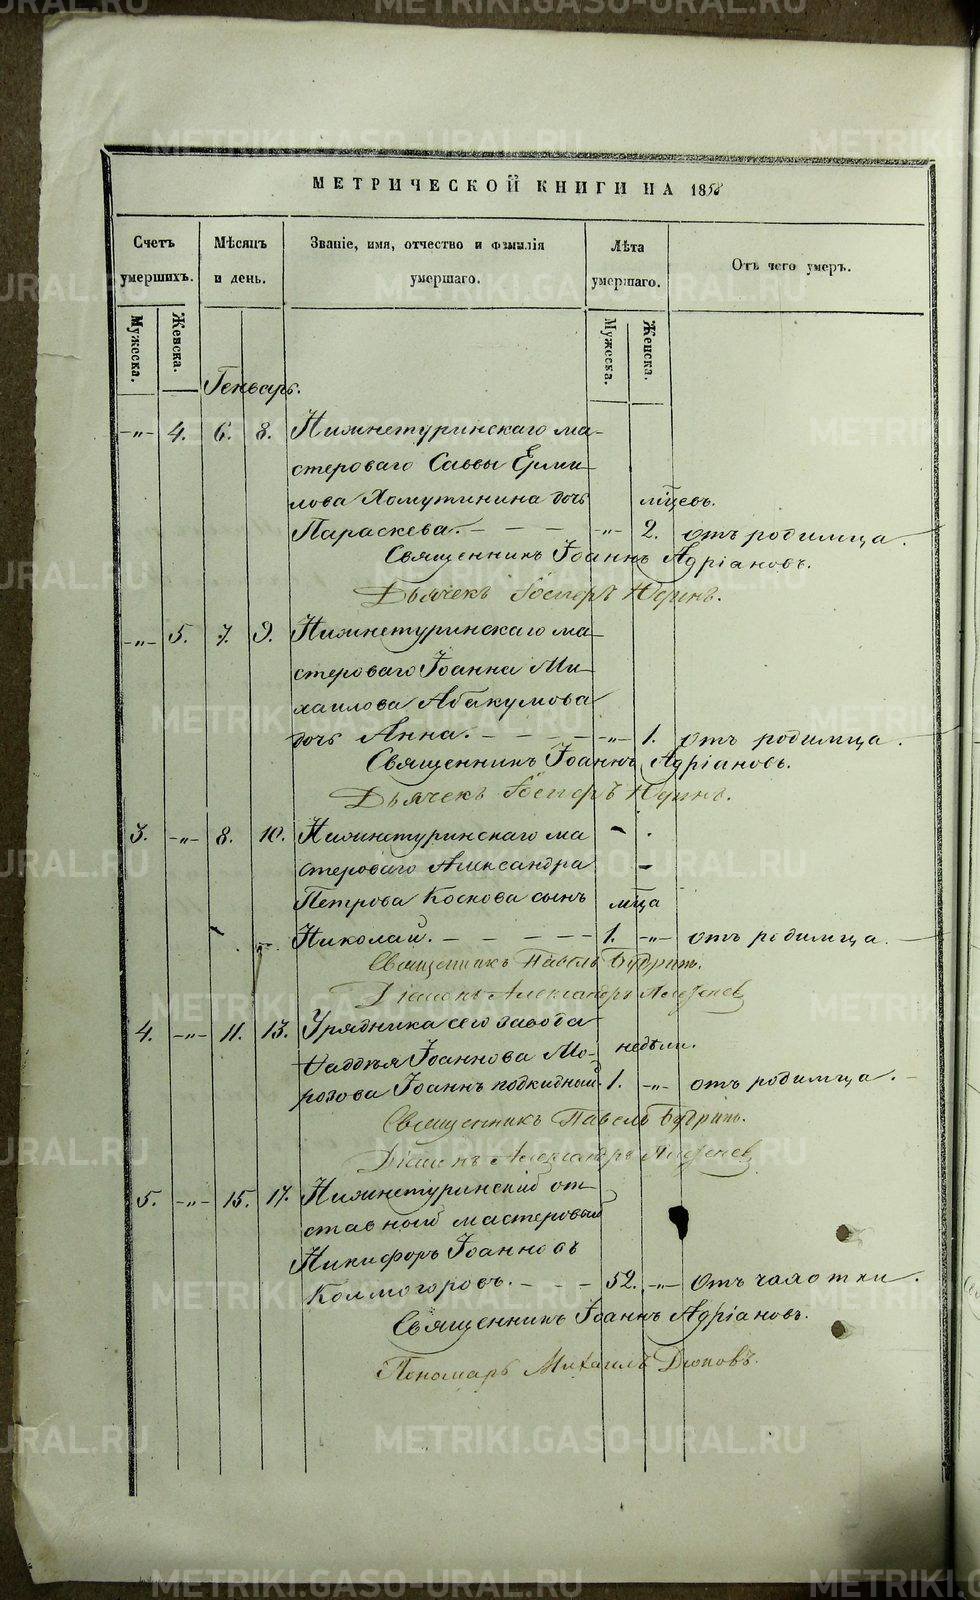 МЕТРИЧЕСКОЙ КНИГИ НА 1858
Счетъ умершихъ.
Мѣсяцъ и день.
Званіе, имя, отчество и фамилія умершаго.
Лѣта умершаго.
Отъ чего умеръ.
Мужеска. Женска. Мужеска. Женска.
Генварь.
-„- 4. 6. 8. Нижнетуринскаго ма-
стероваго Саввы Ерми-
лова Хомутинина дочь мѣсцевъ.
Параскева. - - - - -„- 2. отъ родимца.
Священникъ Іоаннъ Адріановъ.
Дьячекъ Іосифъ
-„- 5. 7. 9. Нижнетуринскаго ма-
стероваго Іоанна Ми-
хаилова Абакумова
дочь Анна. - - - - -„- 1. отъ родимца.
Священникъ Іоаннъ Адріановъ.
Дьячекъ Іосифъ
3. -„- 8. 10. Нижнетуринскаго ма
стероваго Александра
Петрова Коскова сынъ мѣца
Николай. - - - - - 1. -„- отъ родимца.
Священникъ Павелъ
Діаконъ Александръ
4. -„- 11. 13. Урядника сего завода
Ѳаддѣя Іоаннова Мо- недѣли.
розова Іоаннъ подкидный 1. -„- отъ родимца.
Священникъ Павелъ
Діаконъ Александръ
5. -„- 15. 17. Нижнетуринскій от
ставной мастеровый
Никифоръ Іоанновъ
Колмогоровъ. - - - 52. -„- Отъ чахотки.
Священникъ Іоаннъ Адріановъ.
Пономарь Михаилъ Дюковъ.
METRIKI.GASO-URAL.RU